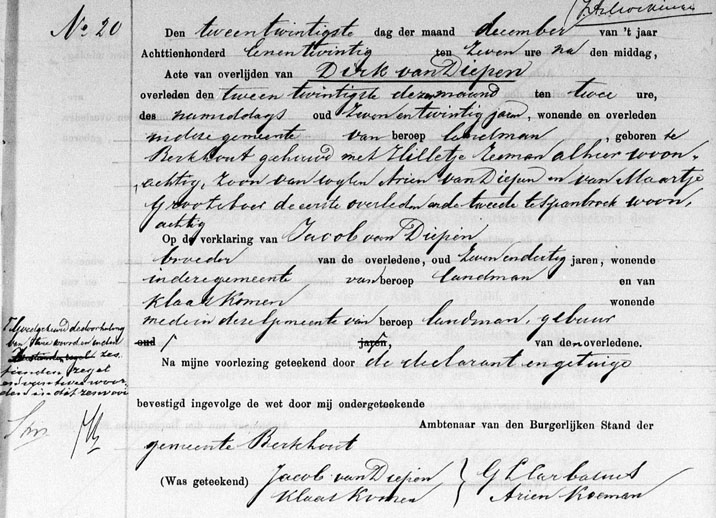 No 20
Den tweentwintigste dag der maand december van 't jaar
Achttienhonderd Eenentwintig ten Zeven ure na den middag,
Acte van overlijden van Dirk van Diepen
overleden den tweentwintigste dezer maand ten twee ure,
des namiddags oud Zeven en twintig jaren, wonende en overleden
in deze gemeente van beroep landman, geboren te
Berkhout gehuwd met Hilletje Zeeman alhier woon-
achtig, Zoon van wylen Arien van Diepen en van Maartje
Grooteboer de eerste overleden en de tweede te Spanbroek woon,
achtig
Op de verklaring van Jacob van Diepen
broeder van de overledene, oud Zeven en dertig jaren, wonende
in deze gemeente van beroep landman en van
Klaas Komen wonende
mede in dezelfde gemeente van beroep landman, gebuur
oud jaren, van den overledene.
Na mijne voorlezing geteekend door de declarant en getuige
bevestigd ingevolge de wet door mij ondergeteekende
Ambtenaar van den Burgerlijken Stand der
gemeente Berkhout
(Was geteekend) Jacob van Diepen
Klaas Komen
Arien Koeman
Goedgekeurd de doorhaling
van twee woorden in den
zes
tienden regel